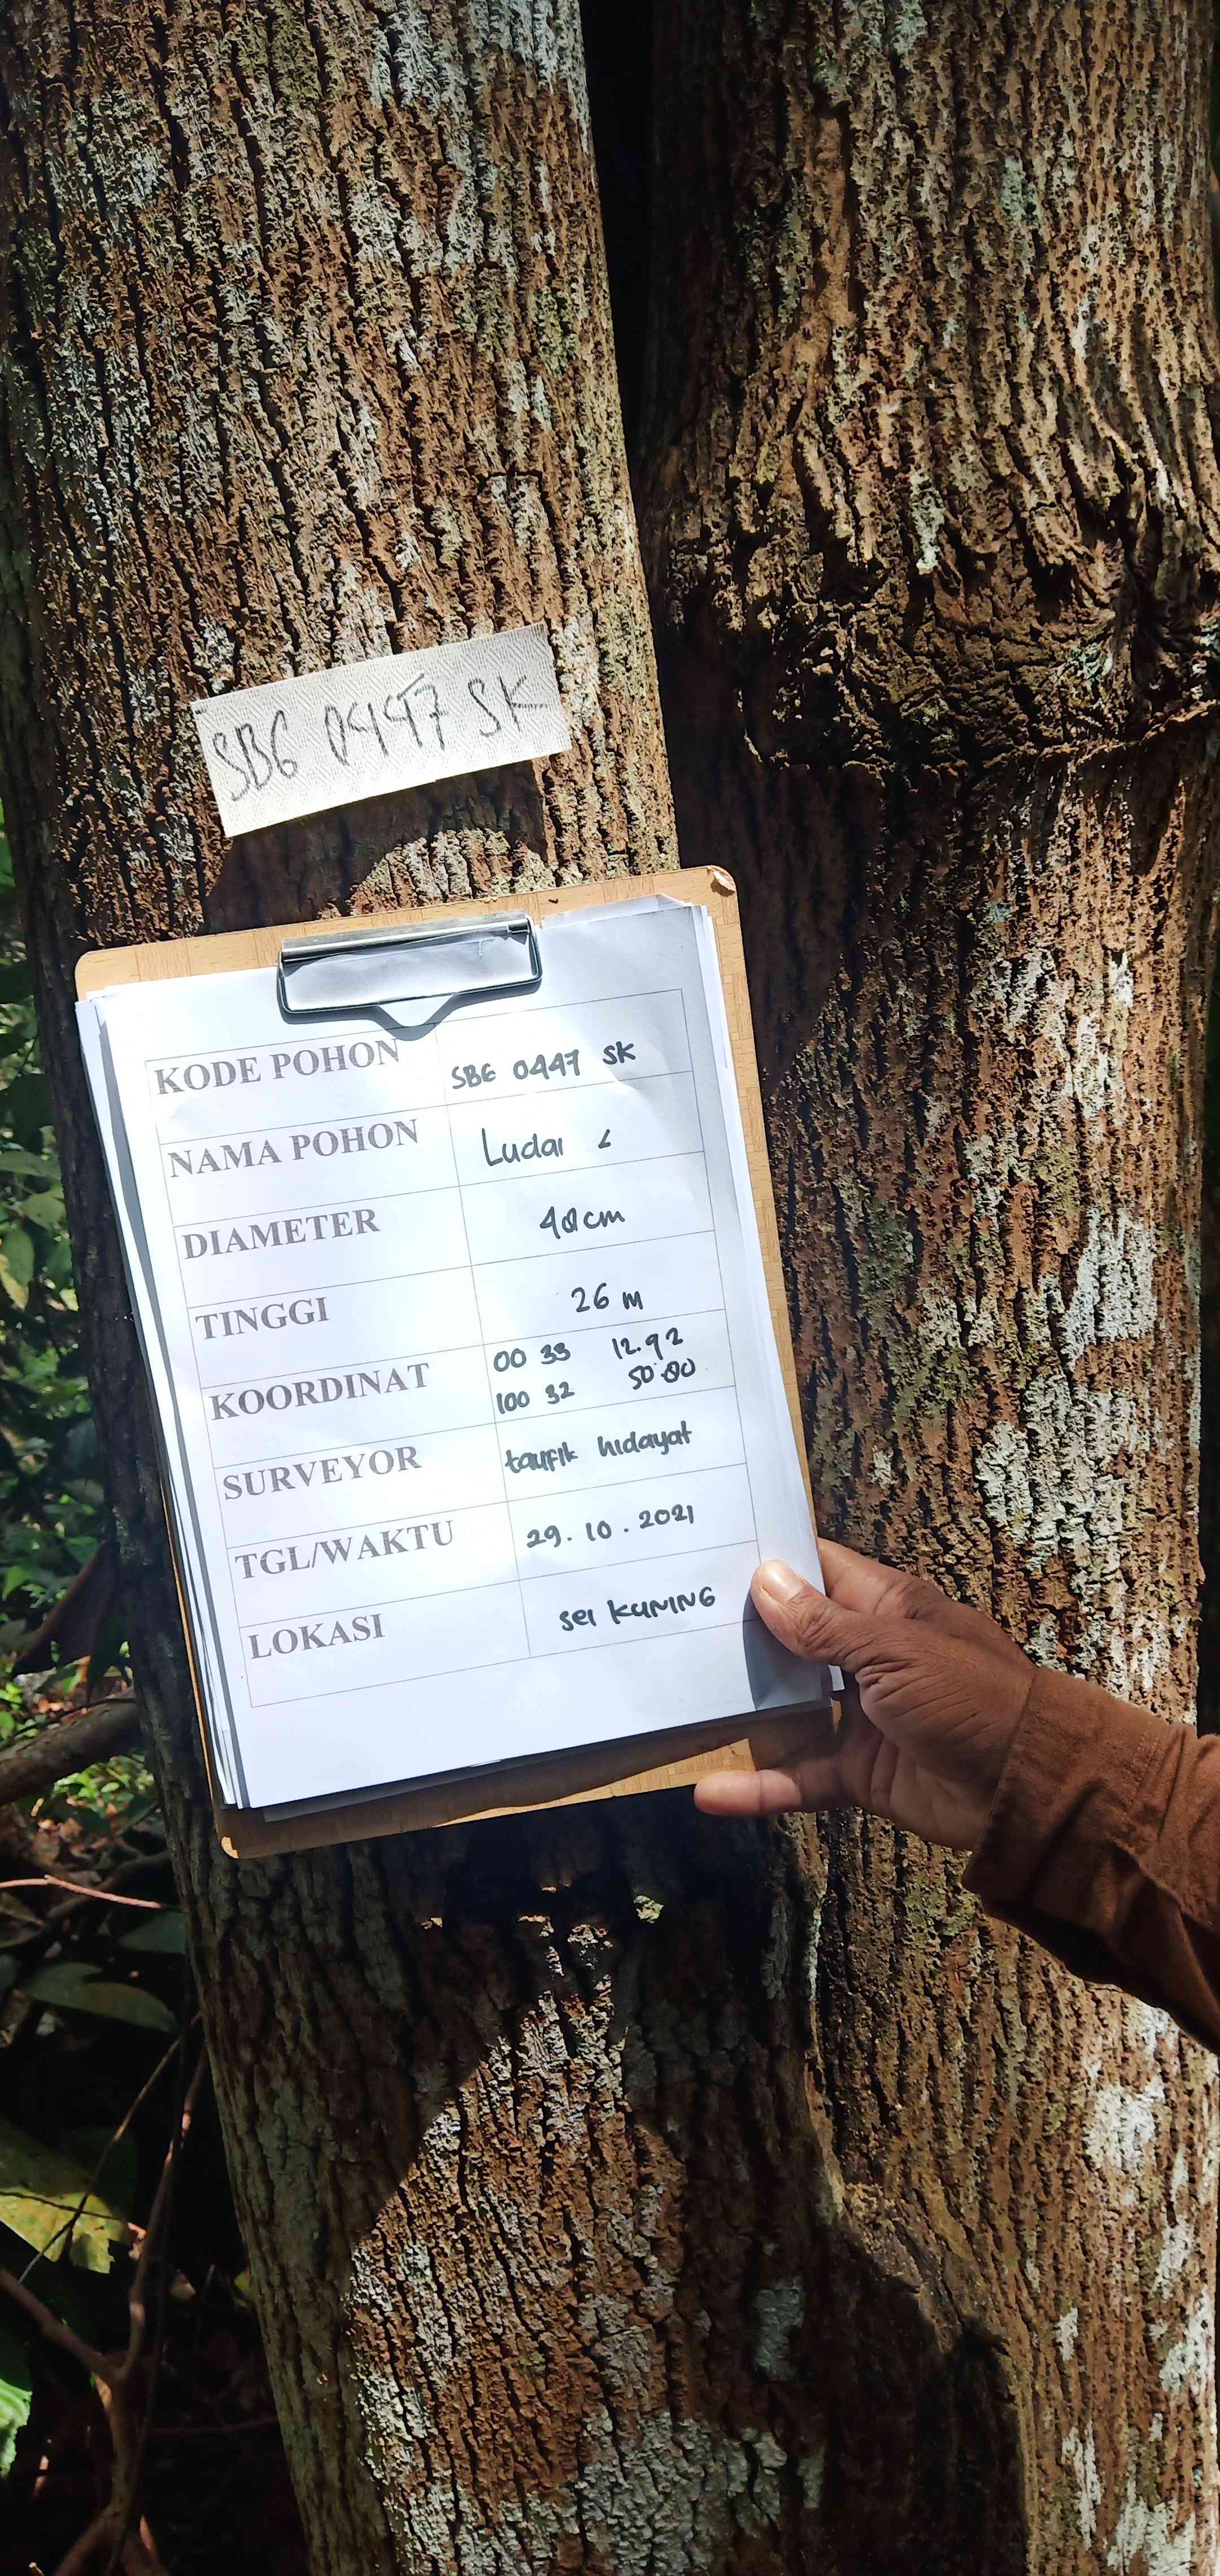 SBG 0447 SK
KODE POHON SBG 0447 SK
NAMA POHON Ludai L
DIAMETER
TINGGI 26 m
KOORDINAT 00 33 12.92
100 32
SURVEYOR taufik hidayat
TGL/WAKTU 29.10.2021
LOKASI sei KUNING